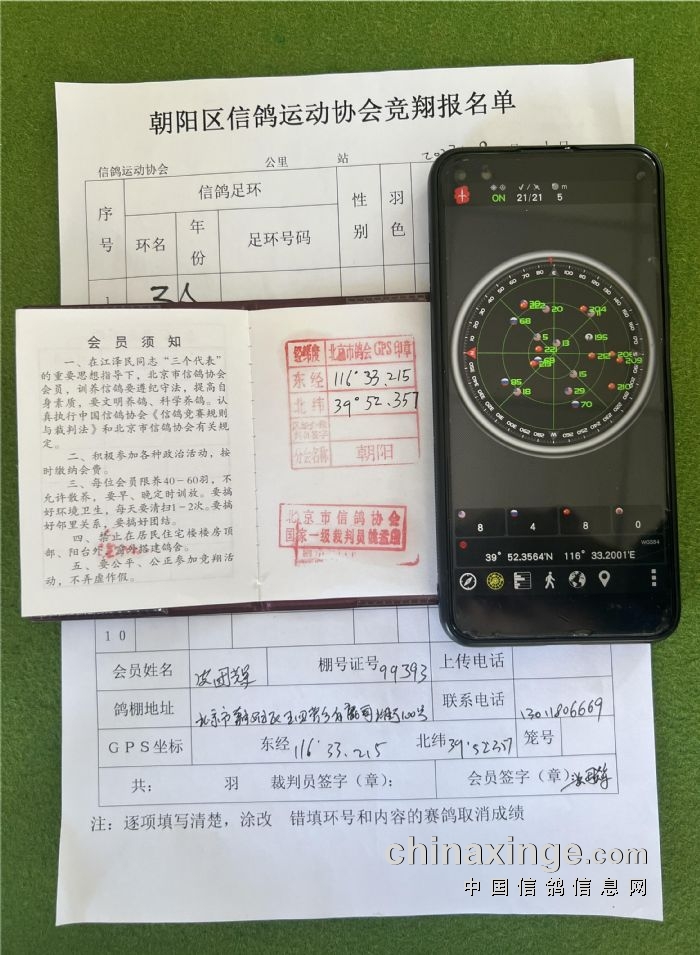 朝阳区信鸽运动协会竞翔报名单
信鸽运动协会 公里 站
序号 信鸽足环 性别 羽色
环名 年份 足环号码
1
会员须知
一、在江泽民同志“三个代表”
的重要思想指导下，北京市信鸽协会
会员，训养信鸽要遵纪守法，提高自
身素质，要文明养鸽、科学养鸽。认
真执行中国信鸽协会《信鸽竞赛规则
与裁判法》和北京市信鸽协会有关规
定。
二、积极参加各种政治活动，按
时缴纳会费。
三、每位会员限养40-60羽，不
允许散养，要早、晚定时训放。要搞
好环境卫生，每天要清扫1-2次。要搞
好邻里关系，要搞好团结。
四、禁止在居民住宅楼楼房顶
部、阳台外、窗外搭建鸽舍。
五、要公平、公正参加竞翔活
动，不弄虚作假。
经纬度 北京市鸽会GPS印章
东经 116°33.215
北纬 39°52.357
分会名称 朝阳
北京市信鸽协会
国家一级裁判员
ON 21/21 5 m
8 4 8 0
WGS84
39° 52.3564'N 116° 33.2001'E
10
会员姓名 棚号证号 99393 上传电话
鸽棚地址 联系电话 13011806669
GPS坐标 东经 116°33.215 北纬 39°52357 笼号
共： 羽 裁判员签字（章）： 会员签字（章）
注：逐项填写清楚，涂改 错填环号和内容的赛鸽取消成绩
chinaxinge.com
中国信鸽信息网